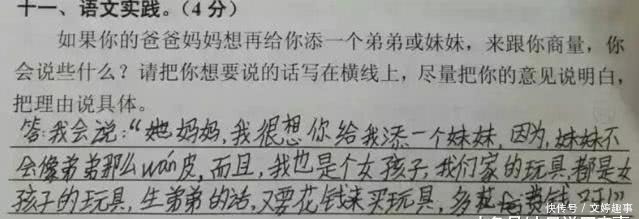 十一、语文实践。(4分)
如果你的爸爸妈妈想再给你添一个弟弟或妹妹，来跟你商量，你
会说些什么？请把你想要说的话写在横线上，尽量把你的意见说明白，
把理由说具体。
答：我会说：“妈妈，我很想你给我添一个妹妹，因为，妹妹不
会像弟弟那么wán皮，而且，我也是个女孩子，我们家的玩具，都是女
孩子的玩具，生弟弟的话，又要花钱来买玩具，多
快传号/文婷趣事